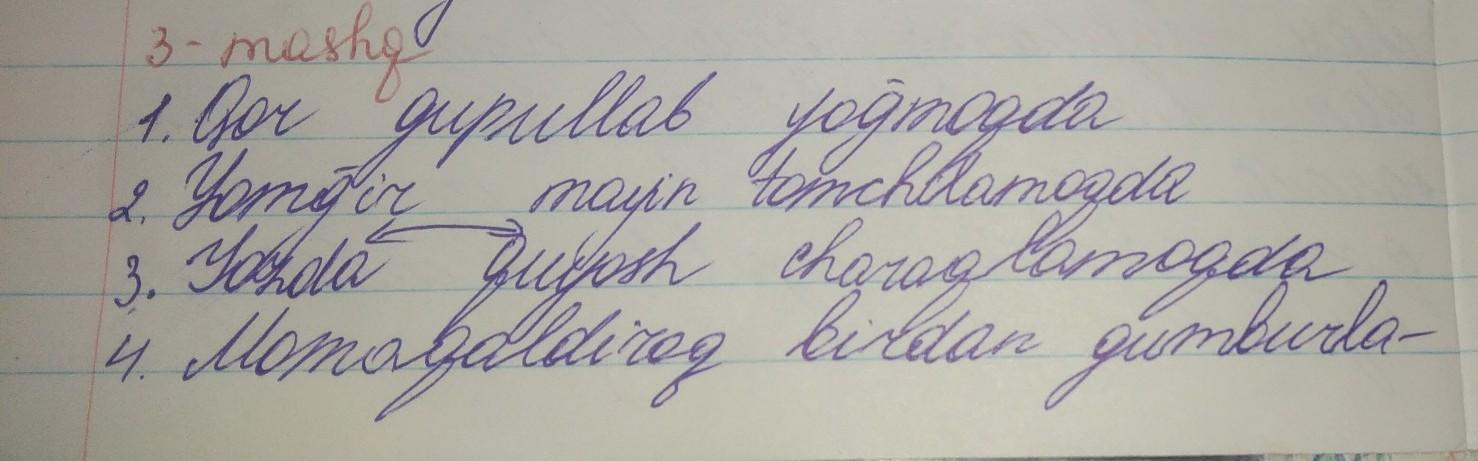 3-mashq
1. Qor gupullab yog̃moqda
2. Yomg̃ir mayin tomchilamoqda
3. Yozda quyosh charaqlamoqda
4. Momaqaldiroq birdan gumburla-